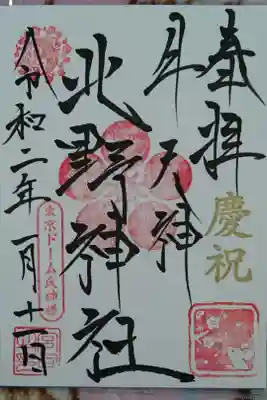 奉拝
慶祝
牛天神
北野神社
東京ドーム氏神様
令和二年一月十一日